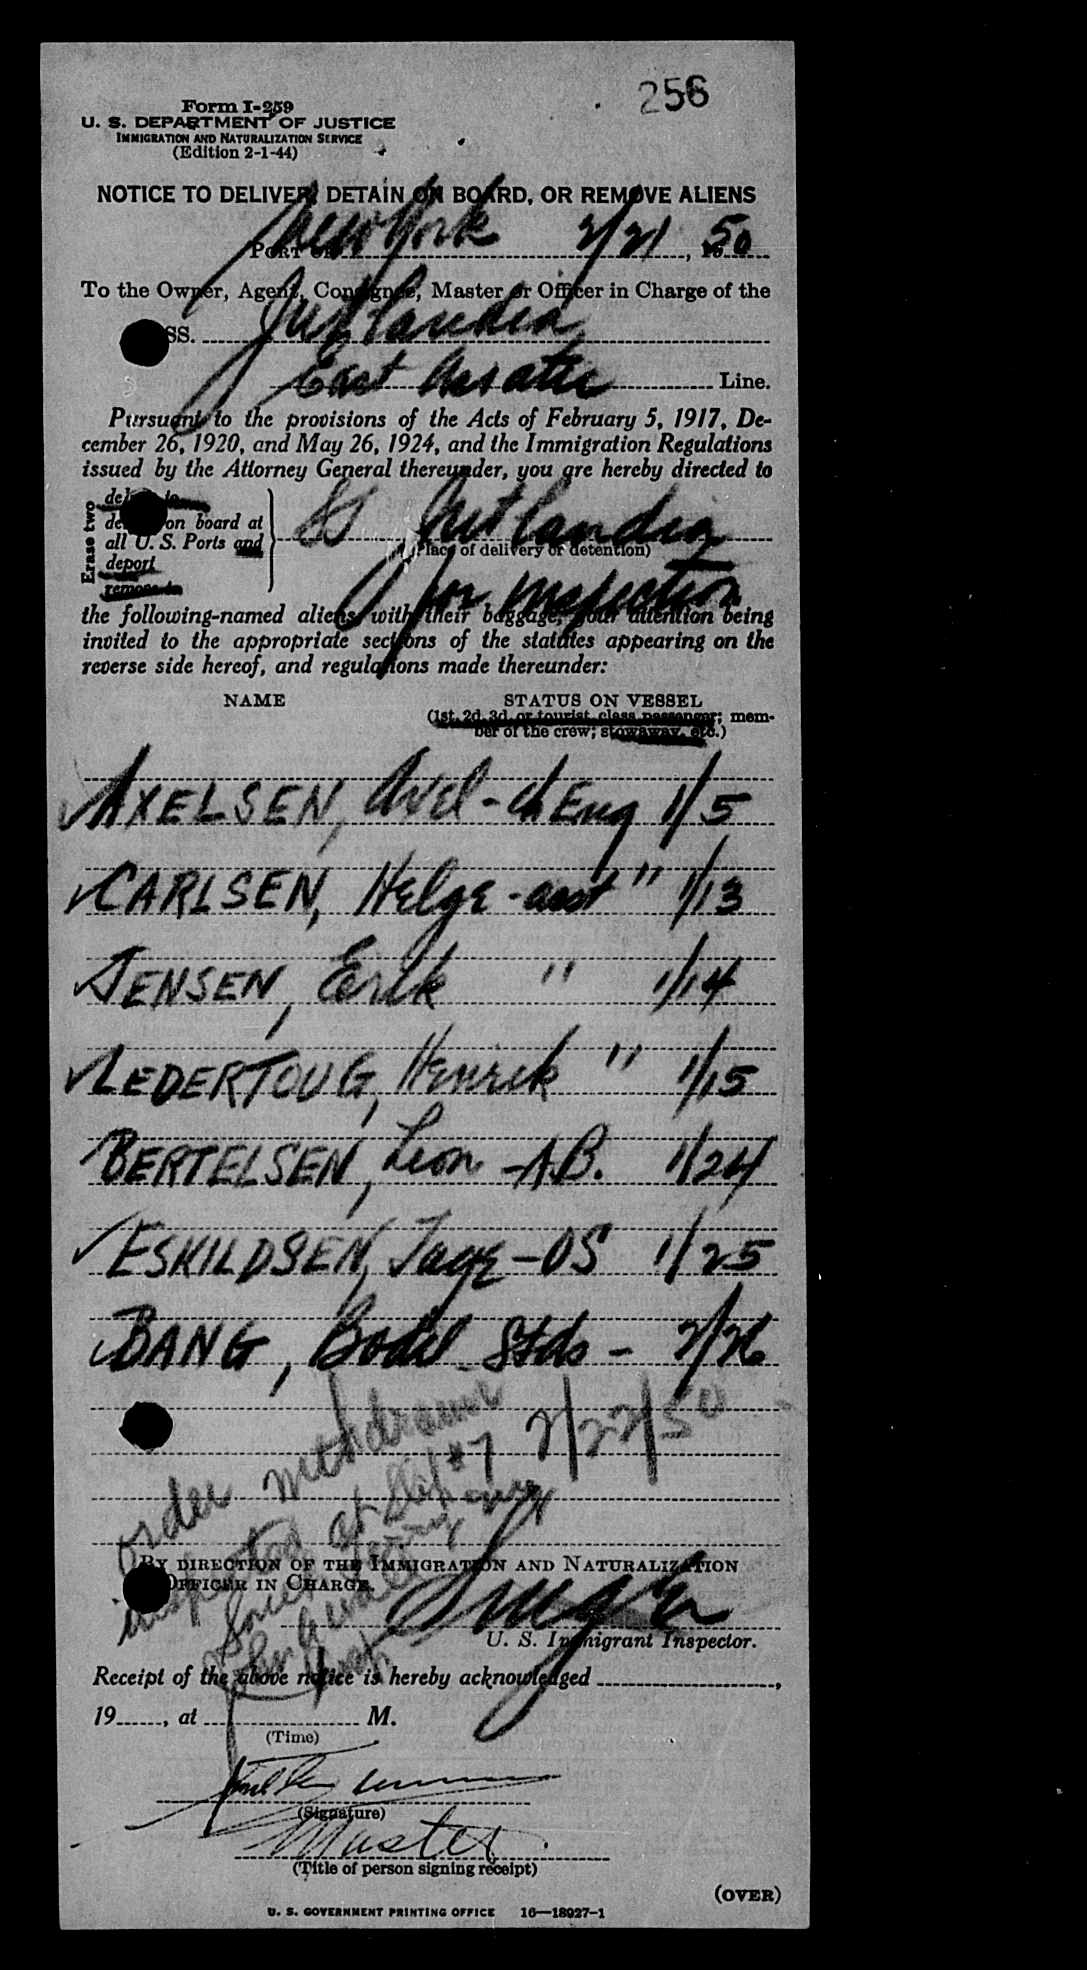 256
Form I-259
U. S. DEPARTMENT OF JUSTICE
IMMIGRATION AND NATURALIZATION SERVICE
(Edition 2-1-44)
NOTICE TO DELIVER, DETAIN ON BOARD, OR REMOVE ALIENS
PORT OF New York 2/21, 1950
To the Owner, Agent, Consignee, Master or Officer in Charge of the
SS. Jutlandia
East Asiatic Line.
Pursuant to the provisions of the Acts of February 5, 1917, De-
cember 26, 1920, and May 26, 1924, and the Immigration Regulations
issued by the Attorney General thereunder, you are hereby directed to
Erase two
deliver to
detain on board at
all U. S. Ports and
deport
remove to
SS Jutlandia
(Place of delivery or detention)
for inspection
the following-named aliens with their baggage, your attention being
invited to the appropriate sections of the statutes appearing on the
reverse side hereof, and regulations made thereunder:
NAME STATUS ON VESSEL
(1st, 2d, 3d, or tourist class passenger; mem-
ber of the crew; stowaway, etc.)
AXELSEN, Axel - ch Eng 1/5
CARLSEN, Helge - asst " 1/13
JENSEN, Erik " 1/14
LEDERTOUG, Henrik " 1/15
BERTELSEN, Leon - A.B. 1/24
ESKILDSEN, Tage - OS 1/25
BANG, Bodil - Stds - 2/26
order withdrawn 2/22/50
inspected at #7
BY DIRECTION OF THE IMMIGRATION AND NATURALIZATION
OFFICER IN CHARGE.
U. S. Immigrant Inspector.
Receipt of the above notice is hereby acknowledged ,
19 , at M.
(Time)
(Signature)
Master
(Title of person signing receipt)
(OVER)
U. S. GOVERNMENT PRINTING OFFICE 16—18927-1